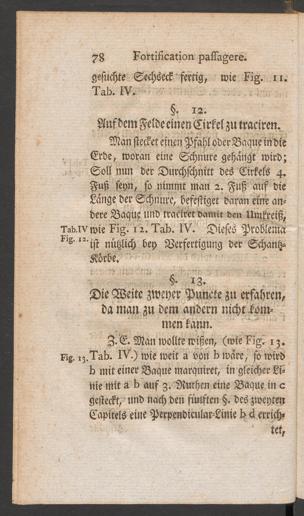 78 Fortification passagere.
gesuchte Sechseck fertig, wie Fig. 11.
Tab. IV.
§. 12.
Auf dem Felde einen Cirkel zu traciren.
Man stecket einen Pfahl oder Baque in die
Erde, woran eine Schnure gehängt wird;
Soll nun der Durchschnitt des Cirkels 4.
Fuß seyn, so nimmt man 2. Fuß auf die
Länge der Schnure, befestiget daran eine an-
dere Baque und traciret damit den Umkreiß,
Tab.IV wie Fig. 12. Tab. IV. Dieses Problema
Fig. 12. ist nützlich bey Verfertigung der Schantz-
Körbe.
§. 13.
Die Weite zweyer Puncte zu erfahren,
da man zu dem andern nicht kom-
men kann.
Z. E. Man wollte wißen, (wie Fig. 13.
Fig. 13. Tab. IV.) wie weit a von b wäre, so wird
b mit einer Baque marquiret, in gleicher Li-
nie mit a b auf 3. Ruthen eine Baque in c
gesteckt, und nach den fünften §. des zweyten
Capitels eine Perpendicular-Linie b d errich-
tet,